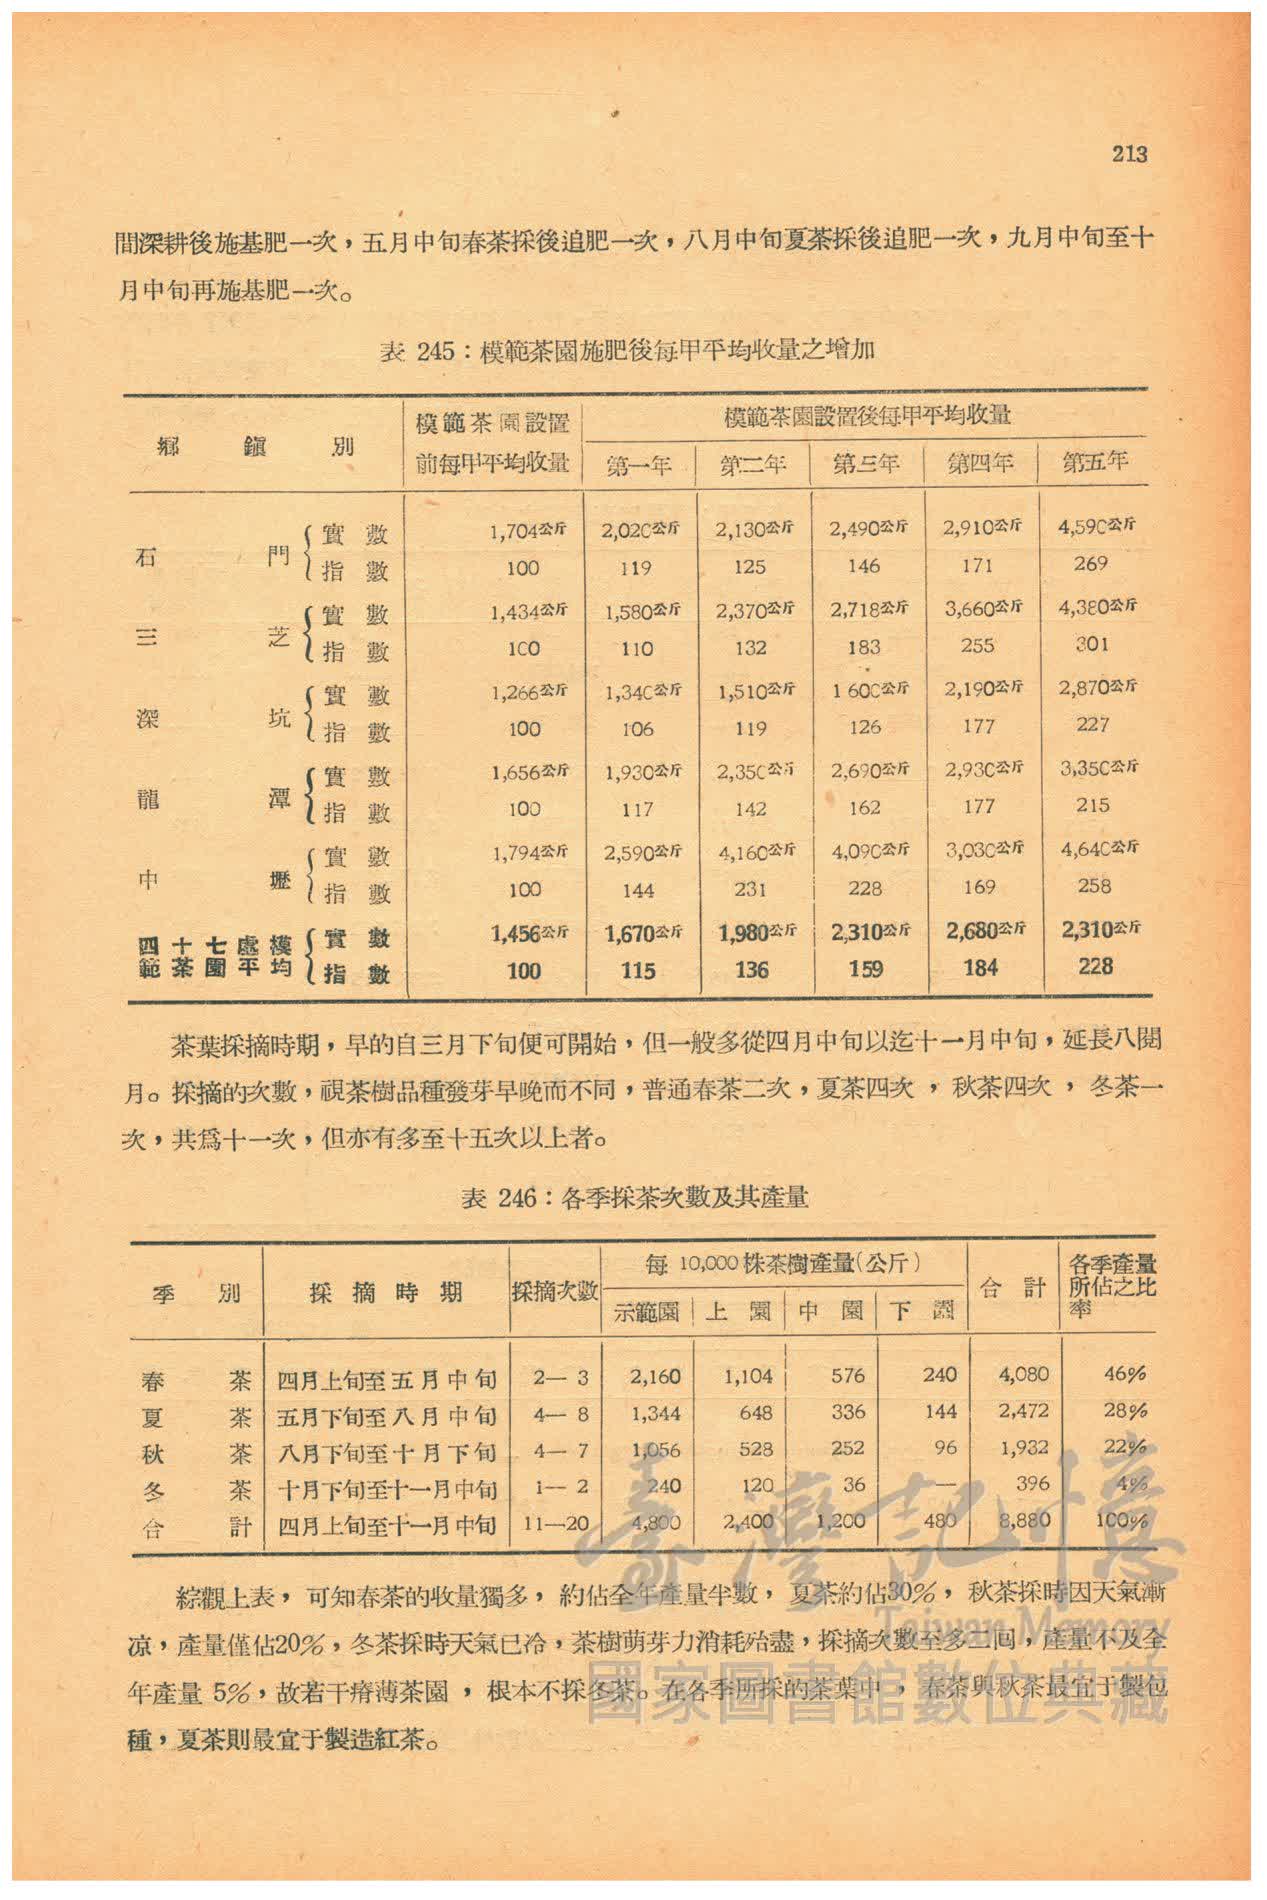 213
間深耕後施基肥一次，五月中旬春茶採後追肥一次，八月中旬夏茶採後追肥一次，九月中旬至十
月中旬再施基肥一次。
表 245：模範茶園施肥後每甲平均收量之增加
鄉 鎭 別 模範茶園設置 模範茶園設置後每甲平均收量
前每甲平均收量 第一年 第二年 第三年 第四年 第五年
石 門 實 數 1,704公斤 2,020公斤 2,130公斤 2,490公斤 2,910公斤 4,590公斤
指 數 100 119 125 146 171 269
三 芝 實 數 1,434公斤 1,580公斤 2,370公斤 2,718公斤 3,660公斤 4,380公斤
指 數 100 110 132 183 255 301
深 坑 實 數 1,266公斤 1,340公斤 1,510公斤 1 600公斤 2,190公斤 2,870公斤
指 數 100 106 119 126 177 227
龍 潭 實 數 1,656公斤 1,930公斤 2,350公斤 2,690公斤 2,930公斤 3,350公斤
指 數 100 117 142 162 177 215
中 壢 實 數 1,794公斤 2,590公斤 4,160公斤 4,090公斤 3,030公斤 4,640公斤
指 數 100 144 231 228 169 258
四十七處模 實 數 1,456公斤 1,670公斤 1,980公斤 2,310公斤 2,680公斤 2,310公斤
範茶園平均 指 數 100 115 136 159 184 228
茶葉採摘時期，早的自三月下旬便可開始，但一般多從四月中旬以迄十一月中旬，延長八閱
月。採摘的次數，視茶樹品種發芽早晚而不同，普通春茶二次，夏茶四次，秋茶四次，冬茶一
次，共爲十一次，但亦有多至十五次以上者。
表 246：各季採茶次數及其產量
季 別 採 摘 時 期 採摘次數 每 10,000 株茶樹產量（公斤） 合 計 各季產量
所佔之比
率
示範園 上 園 中 園 下 園
春 茶 四月上旬至五月中旬 2— 3 2,160 1,104 576 240 4,080 46%
夏 茶 五月下旬至八月中旬 4— 8 1,344 648 336 144 2,472 28%
秋 茶 八月下旬至十月下旬 4— 7 1,056 528 252 96 1,932 22%
冬 茶 十月下旬至十一月中旬 1— 2 240 120 36 — 396 4%
合 計 四月上旬至十一月中旬 11—20 4,800 2,400 1,200 480 8,880 100%
綜觀上表，可知春茶的收量獨多，約佔全年產量半數，夏茶約佔30%，秋茶採時因天氣漸
凉，產量僅佔20%，冬茶採時天氣已冷，茶樹萌芽力消耗殆盡，採摘次數至多二囘，產量不及全
年產量 5%，故若干瘠薄茶園，根本不採冬茶。在各季所採的茶葉中，春茶與秋茶最宜于製包
種，夏茶則最宜于製造紅茶。
臺灣記憶
Taiwan Memory
國家圖書館數位典藏